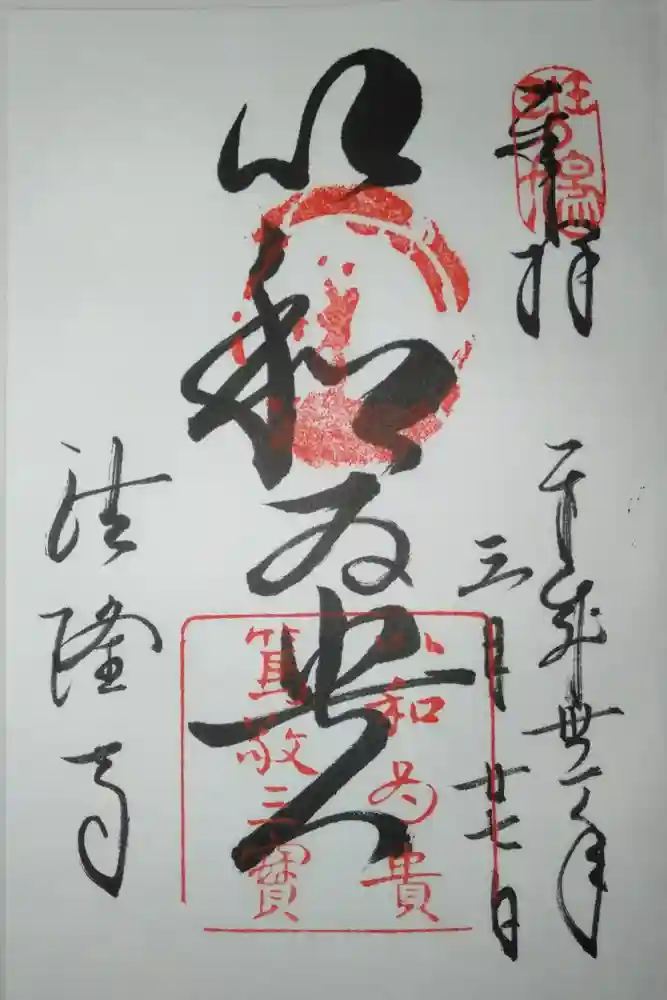 奉拝
斑鳩
平成卅一年
三月廿七日
以和為貴
以和為貴
篤敬三寶
法隆寺